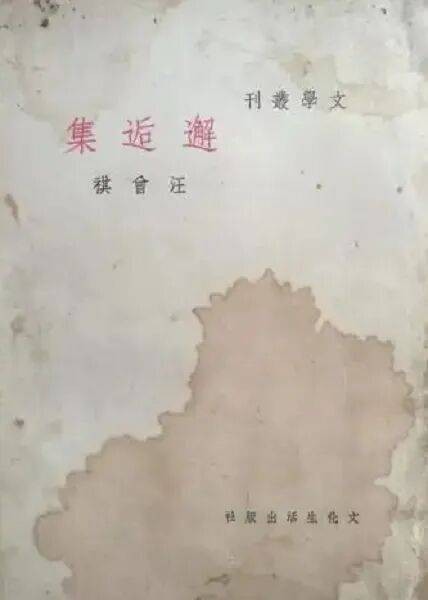 文學叢刊
邂逅集
汪曾祺
文化生活出版社